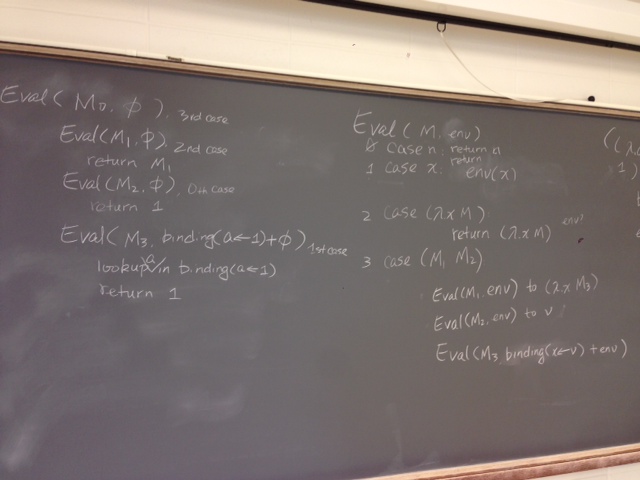 Eval( M0, ϕ). 3rd case
Eval(M1, ϕ). 2nd case
return M1
Eval(M2, ϕ). 0th case
return 1
Eval( M3, binding(a←1)+ϕ) 1st case
lookup a in binding(a←1)
return 1
Eval( M. env)
0 case n: return n
1 case x: return env(x)
2 case (λx M)
return (λ.x M) env?
3 case (M1 M2)
Eval(M1. env) to (λ.x M3)
Eval(M2. env) to v
Eval(M3. binding(x←v) + env)
((λa
1)